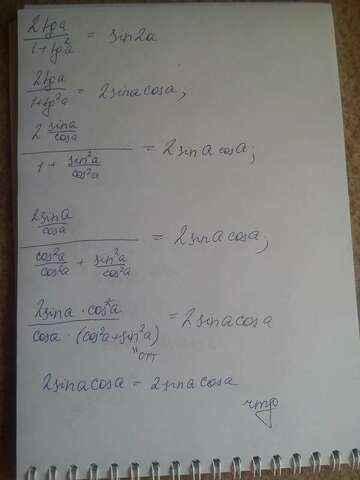 2tga / 1+tg²a = sin2a
2tga / 1+tg²a = 2sina cosa,
2 sina/cosa / 1 + sin²a/cos²a = 2sina cosa;
2sina/cosa / cos²a/cos²a + sin²a/cos²a = 2sina cosa;
2sina · cos²a / cosa · (cos²a+sin²a) = 2sinacosa
2sinacosa = 2sinacosa